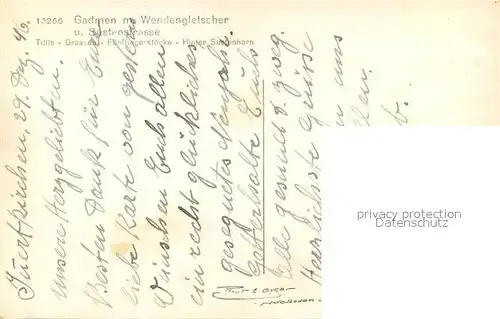 13266 Gadmen m. Wendengletscher
u. Sustenstrasse
Titlis - Grassen - Fünffingerstöcke - Hinter Sustenhorn
Innertkirchen, 29. Dez. 46.
Unsere Herzgeliebten.
Besten Dank für Eure
liebe Karte von gestern
Wünschen Euch allen
ein recht glückliches
gesegnetes Neujahr.
Gott erhalte Euch
Alle gesund & zweg.
Herzlichste Grüsse
uns
privacy protection
www.oldthing.de